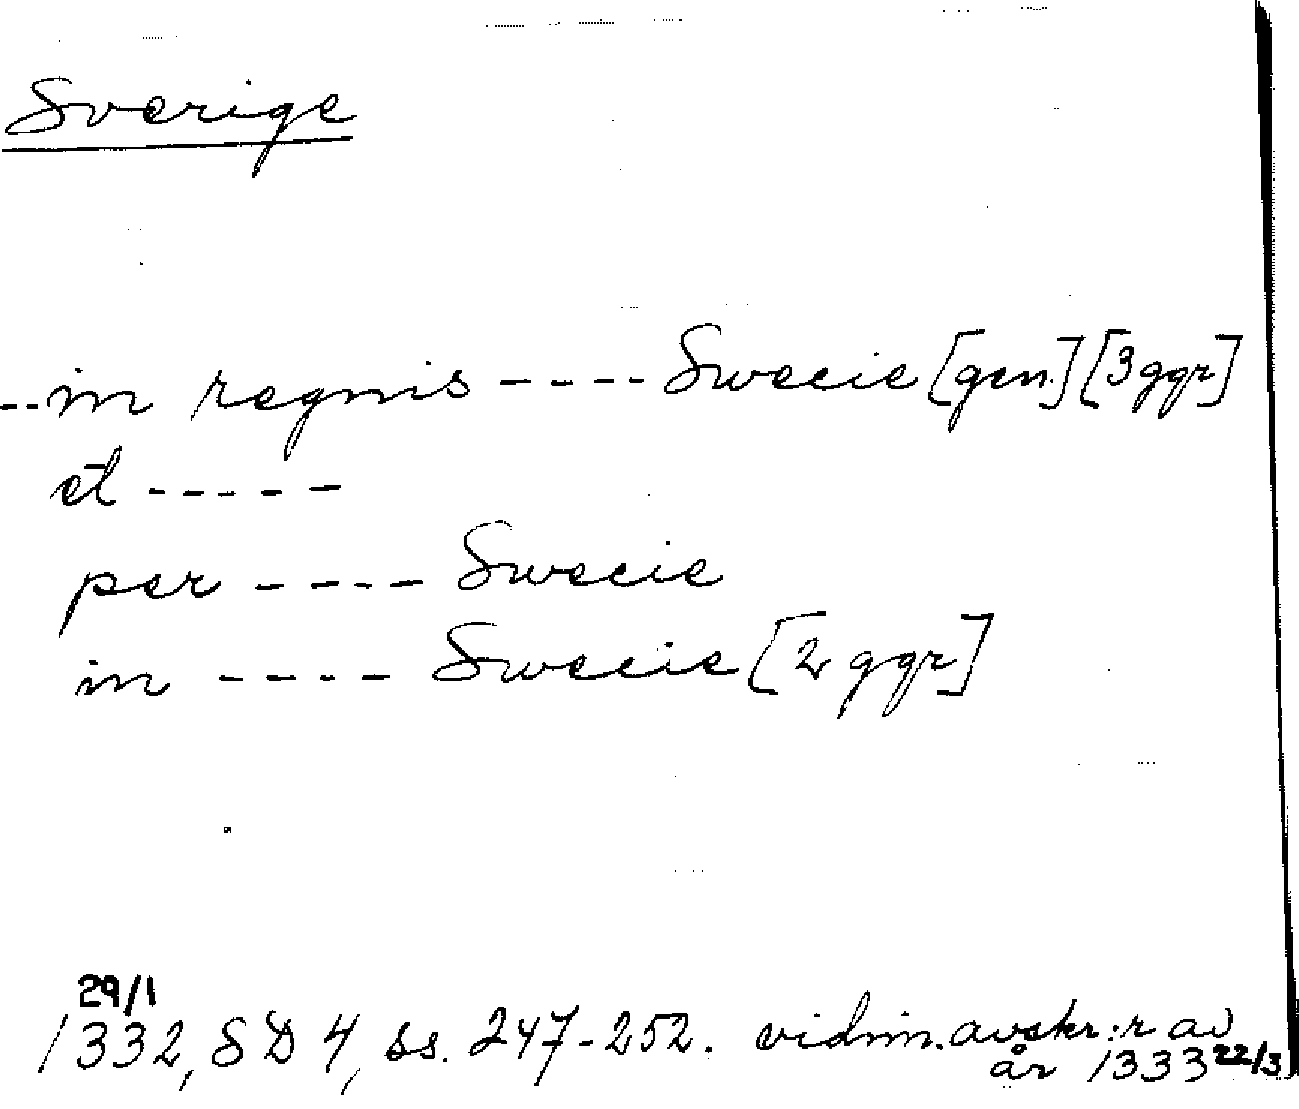 Sverige
--in regnis ---- Swecie [gen.] [3 ggr]
et -----
per ---- Swecie
in ---- Swecie [2 ggr]
29/1
1332, SD 4, ss. 247-252. vidim. avskr:r av
år 1333 22/3